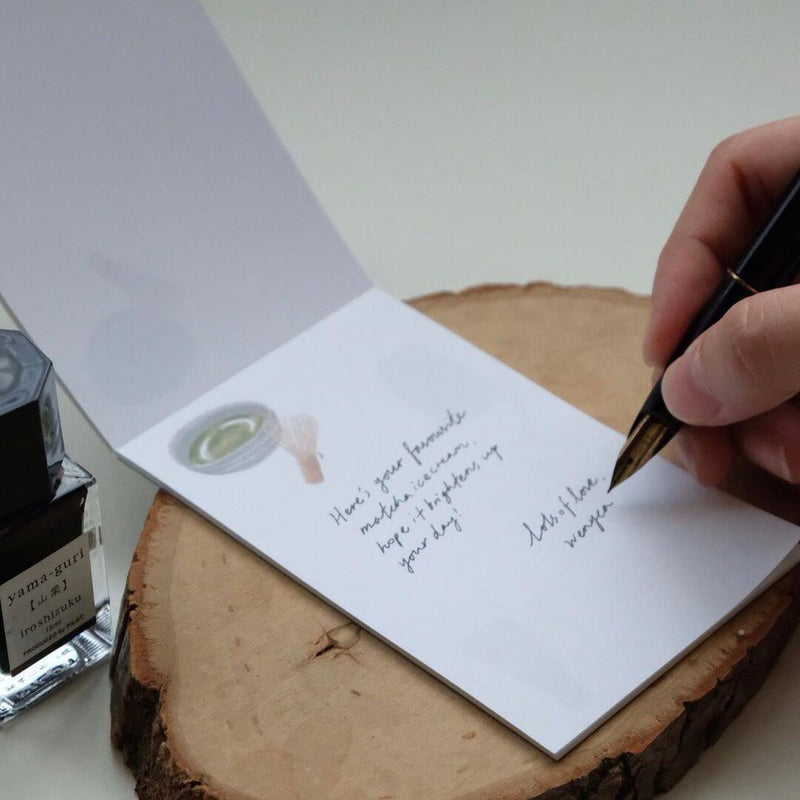 Here's your favourite
matcha icecream,
hope it brightens up
your day!
lots of love,
wenyea
yama-guri
【山栗】
iroshizuku
15ml
PRODUCED by PILOT